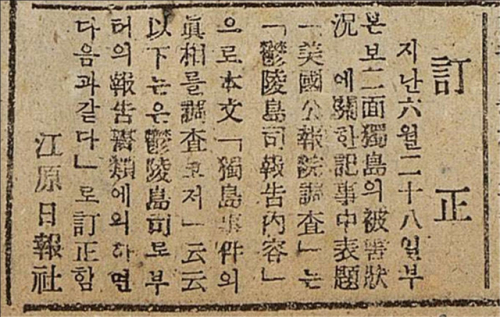 訂正
지난六월二十八일부
본보二面獨島의被害狀
況에關한記事中表題
「美國公報院調査」는
「鬱陵島司報告內容」
으로本文「獨島事件의
眞相를調査코저」云云
以下는은鬱陵島司로부
터의報告書類에의하면
다음과같다」로訂正함
江原日報社